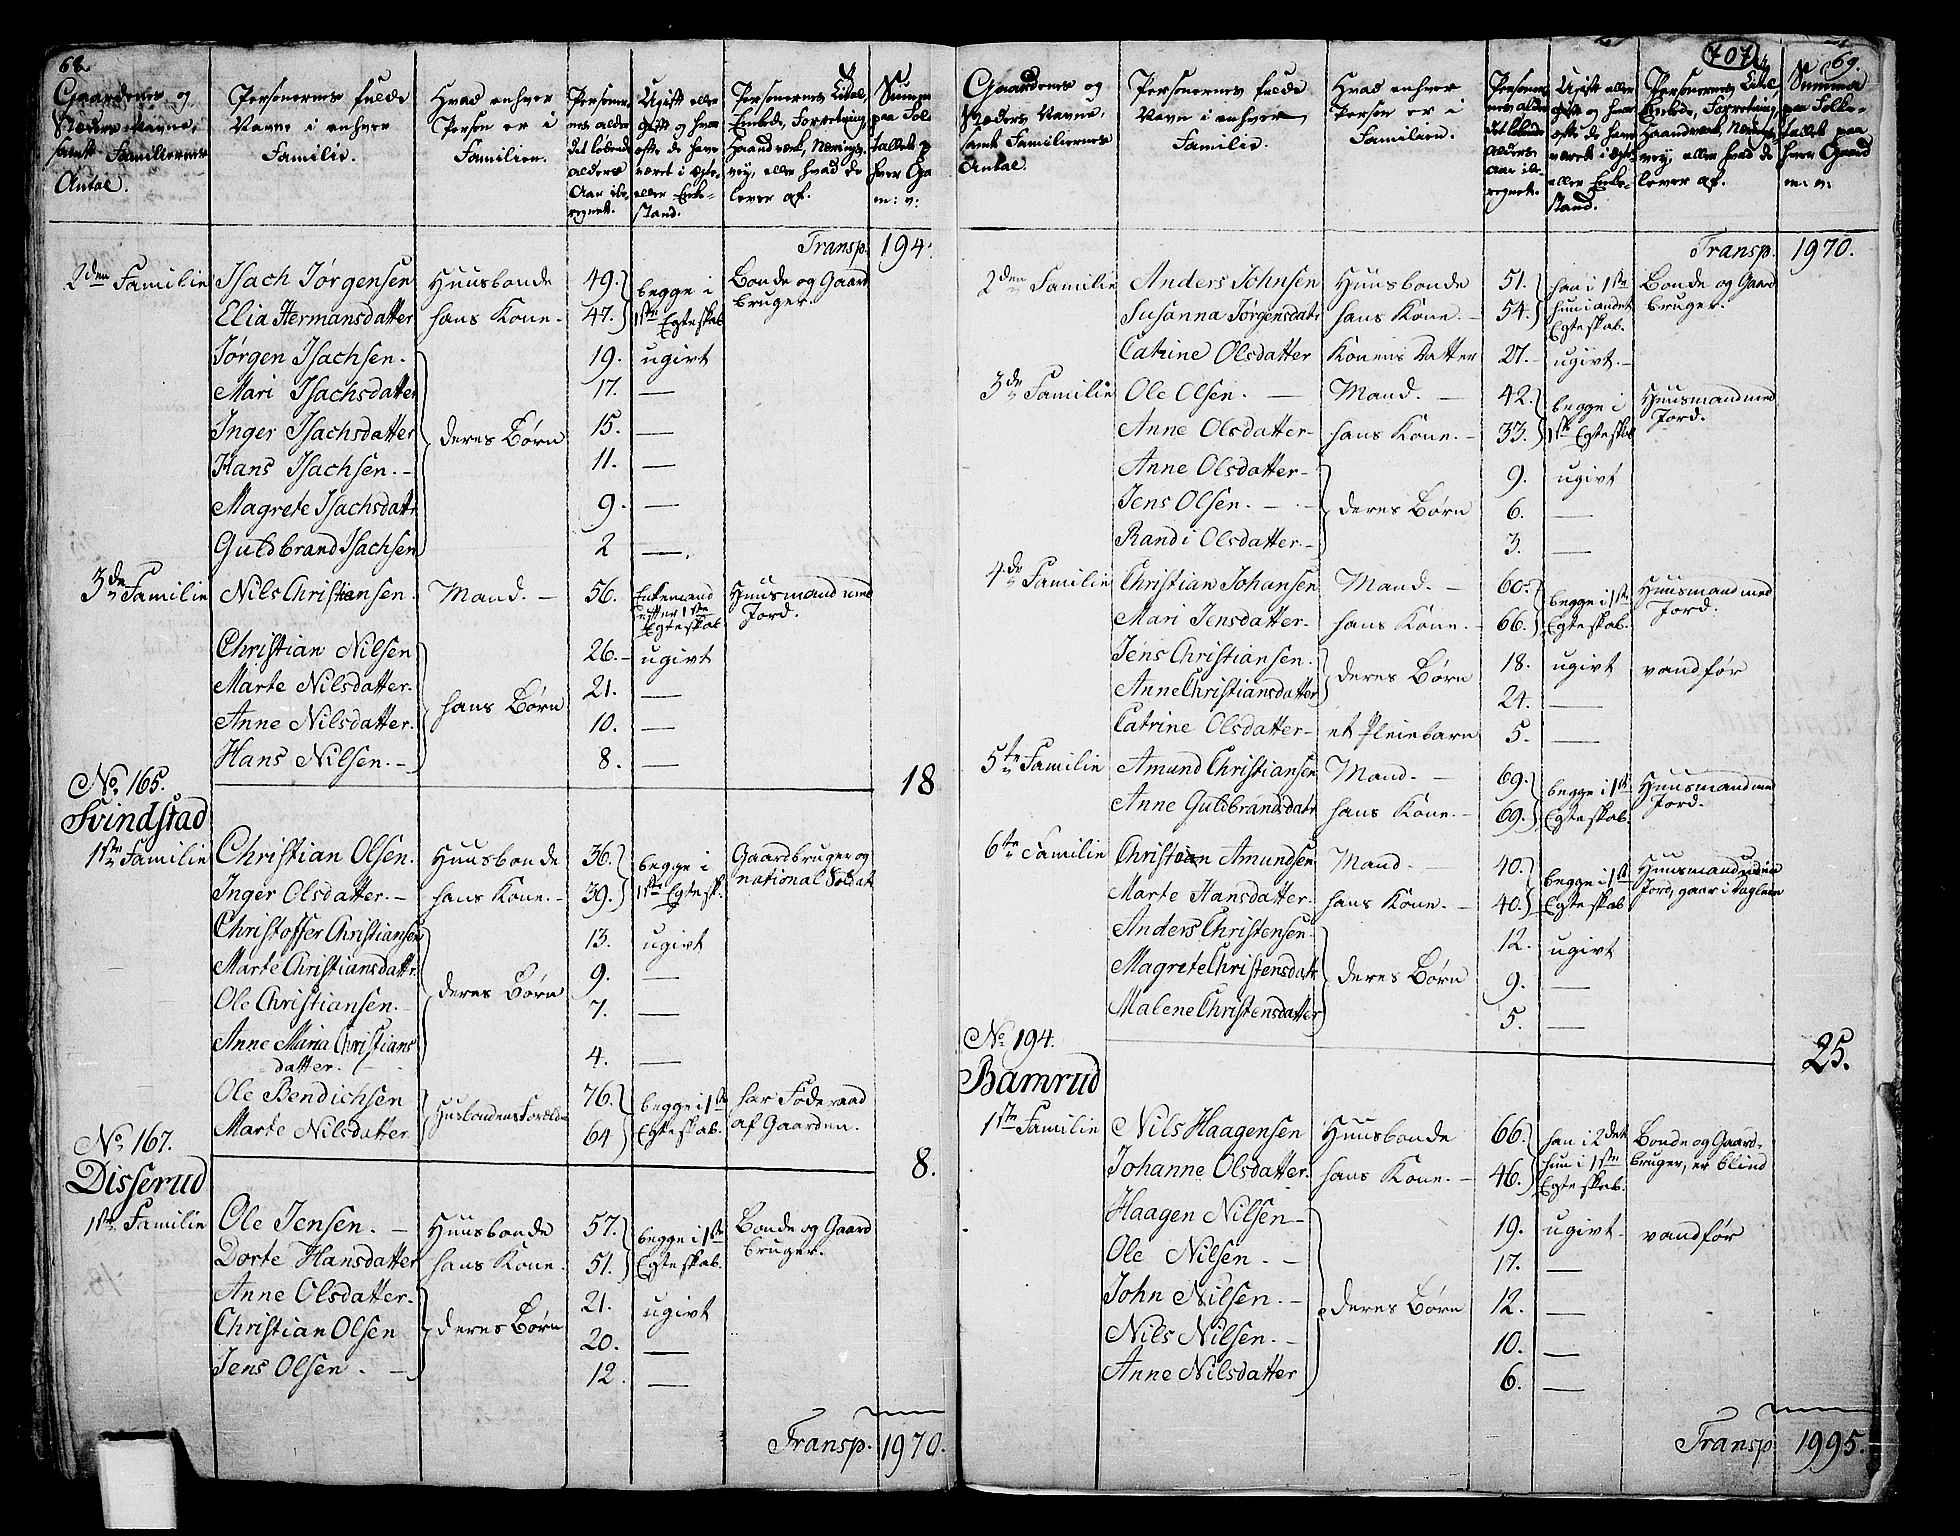 68.
Gaardenes og
Stæders Navne,
samt Familiernes
Antal.
Personernes fulde
Navne i enhver
Familie.
Hvad enhver
Person er i
Familien.
Personer-
nes alder
det løbende
Alders
Aar ibe-
regnet.
Ugift eller
Gift og hvor
ofte de have
været i Ægte-
eller Enke-
stand.
Personernes Titel,
Embede, Forretning,
Haandværk, Nærings-
vej, eller hvad de
lever af.
Summa
paa Fol
tallet p
hver Ga
m: v:
Transp. 194.
2den Familie Isach Jørgensen Huusbonde 49. begge i Bonde og Gaard
Elia Hermansdatter hans Kone. 47. 1ste Egteskab bruger.
Jørgen Isachsen. 19. ugivt
Mari Isachsdatter 17. —
Inger Isachsdatter deres Børn 15. —
Hans Isachsen. – 11. —
Magrete Isachsdattr 9. —
Guldbrand Isachsen 2 —.
3de Familie Nils Christiansen. Mand. – 56. Enkemand Huusmand med
efter 1ste Jord.
Egteskab
Christian Nilsen 26. – ugivt
Marte Nilsdatter. 21. —
Anne Nilsdatter. hans Børn 10. —
Hans Nilsen. – 8. —
No. 165. 18
Svindstad
1ste Familie Christian Olsen. Huusbonde 36. begge i Gaardbruger og
Inger Olsdatter. – hans Kone. – 39. 1ste Egtesk. national Soldat
Christoffer Christiansen 13. ugivt
Marte Christiansdattr. 9. —
Ole Christiansen. – deres Børn 7. —
Anne Maria Christians
datter. 4. —
Ole Bendichsen Husbondens Forældre 76. begge i 1ste har Føderaad
Marte Nilsdatter 64 Egteskab. af Gaarden.
No. 167. 8.
Disserud
1ste Familie Ole Jensen. – Huusbonde 57. begge i 1ste Bonde og Gaard
Dorte Hansdatter hans Kone. 51. Egteskab. bruger.
Anne Olsdatter. 21. ugivt
Christian Olsen deres Børn 20. —
Jens Olsen. – 12. —
Transp. 1970.
707
69.
Gaardenes og
Stæders Navne,
samt Familiernes
Antal.
Personernes fulde
Navn i enhver
Familie.
Hvad enhver
Person er i
Familien.
Personer-
nes alder
det løbende
Alders
Aar ibe-
regnet.
Ugift eller
Gift og hvor
ofte de have
været i Ægte
eller Enke-
stand.
Personernes Titel
Embede, Forretning,
Haandværk, Nærings-
vej, eller hvad de
lever af.
Summa
paa Folke-
tallet paa
hver Gaard
m: v:
Transp. 1970.
2den Familie Anders Johnsen Huusbonde 51. han i 1ste Bonde og Gaard
Susanna Jørgensdatr hans Kone. – 54. hun i andet bruger.
Egteskab.
Catrine Olsdatter Konens Datter 27. – ugivt. –
3de Familie Ole Olsen. — Mand. – 42. begge i Huusmand med
Anne Olsdatter – hans Kone. – 33. 1ste Egteskab Jord.
Anne Olsdatter – 9. ugivt
Jens Olsen. – – deres Børn 6. —
Randi Olsdatter – 3. —
4de Familie Christian Johansen Mand. – 60. begge i 1ste Huusmand med
Mari Jensdatter – hans Kone. – 66. Egteskab. Jord.
Jens Christiansen. deres Børn 18. ugivt vandfør
Anne Christiansdatter 24. —
Catrine Olsdatter – et Pleiebarn 5. —
5te Familie Amund Christiansen Mand. – 69. begge i 1ste Huusmand med
Anne Guldbrandsdatr hans Kone. – 69. Egteskab. Jord.
6te Familie Christian Amundsen Mand. – 40. begge i 1ste Huusmand uden
Marte Hansdatter. hans Kone. – 40. Egteskab Jord, gaar i Dagleie
Anders Christensen 12. ugivt
Magrete Christensdattr deres Børn 9. —
Malene Christensdatter 5. —
No. 194. 25.
Bamrud
1ste Familie Nils Haagensen Huusbonde 66. han i 2det Bonde og Gaard-
Johanne Olsdatter. hans Kone. – 46. hun i 1ste bruger, er blind
Egteskab.
Haagen Nilsen – 19. ugivt – vandfør
Ole Nilsen. – 17. —
John Nilsen. – deres Børn 12. —
Nils Nilsen. – 10. —
Anne Nilsdatter 6. —
Transp. 1995.